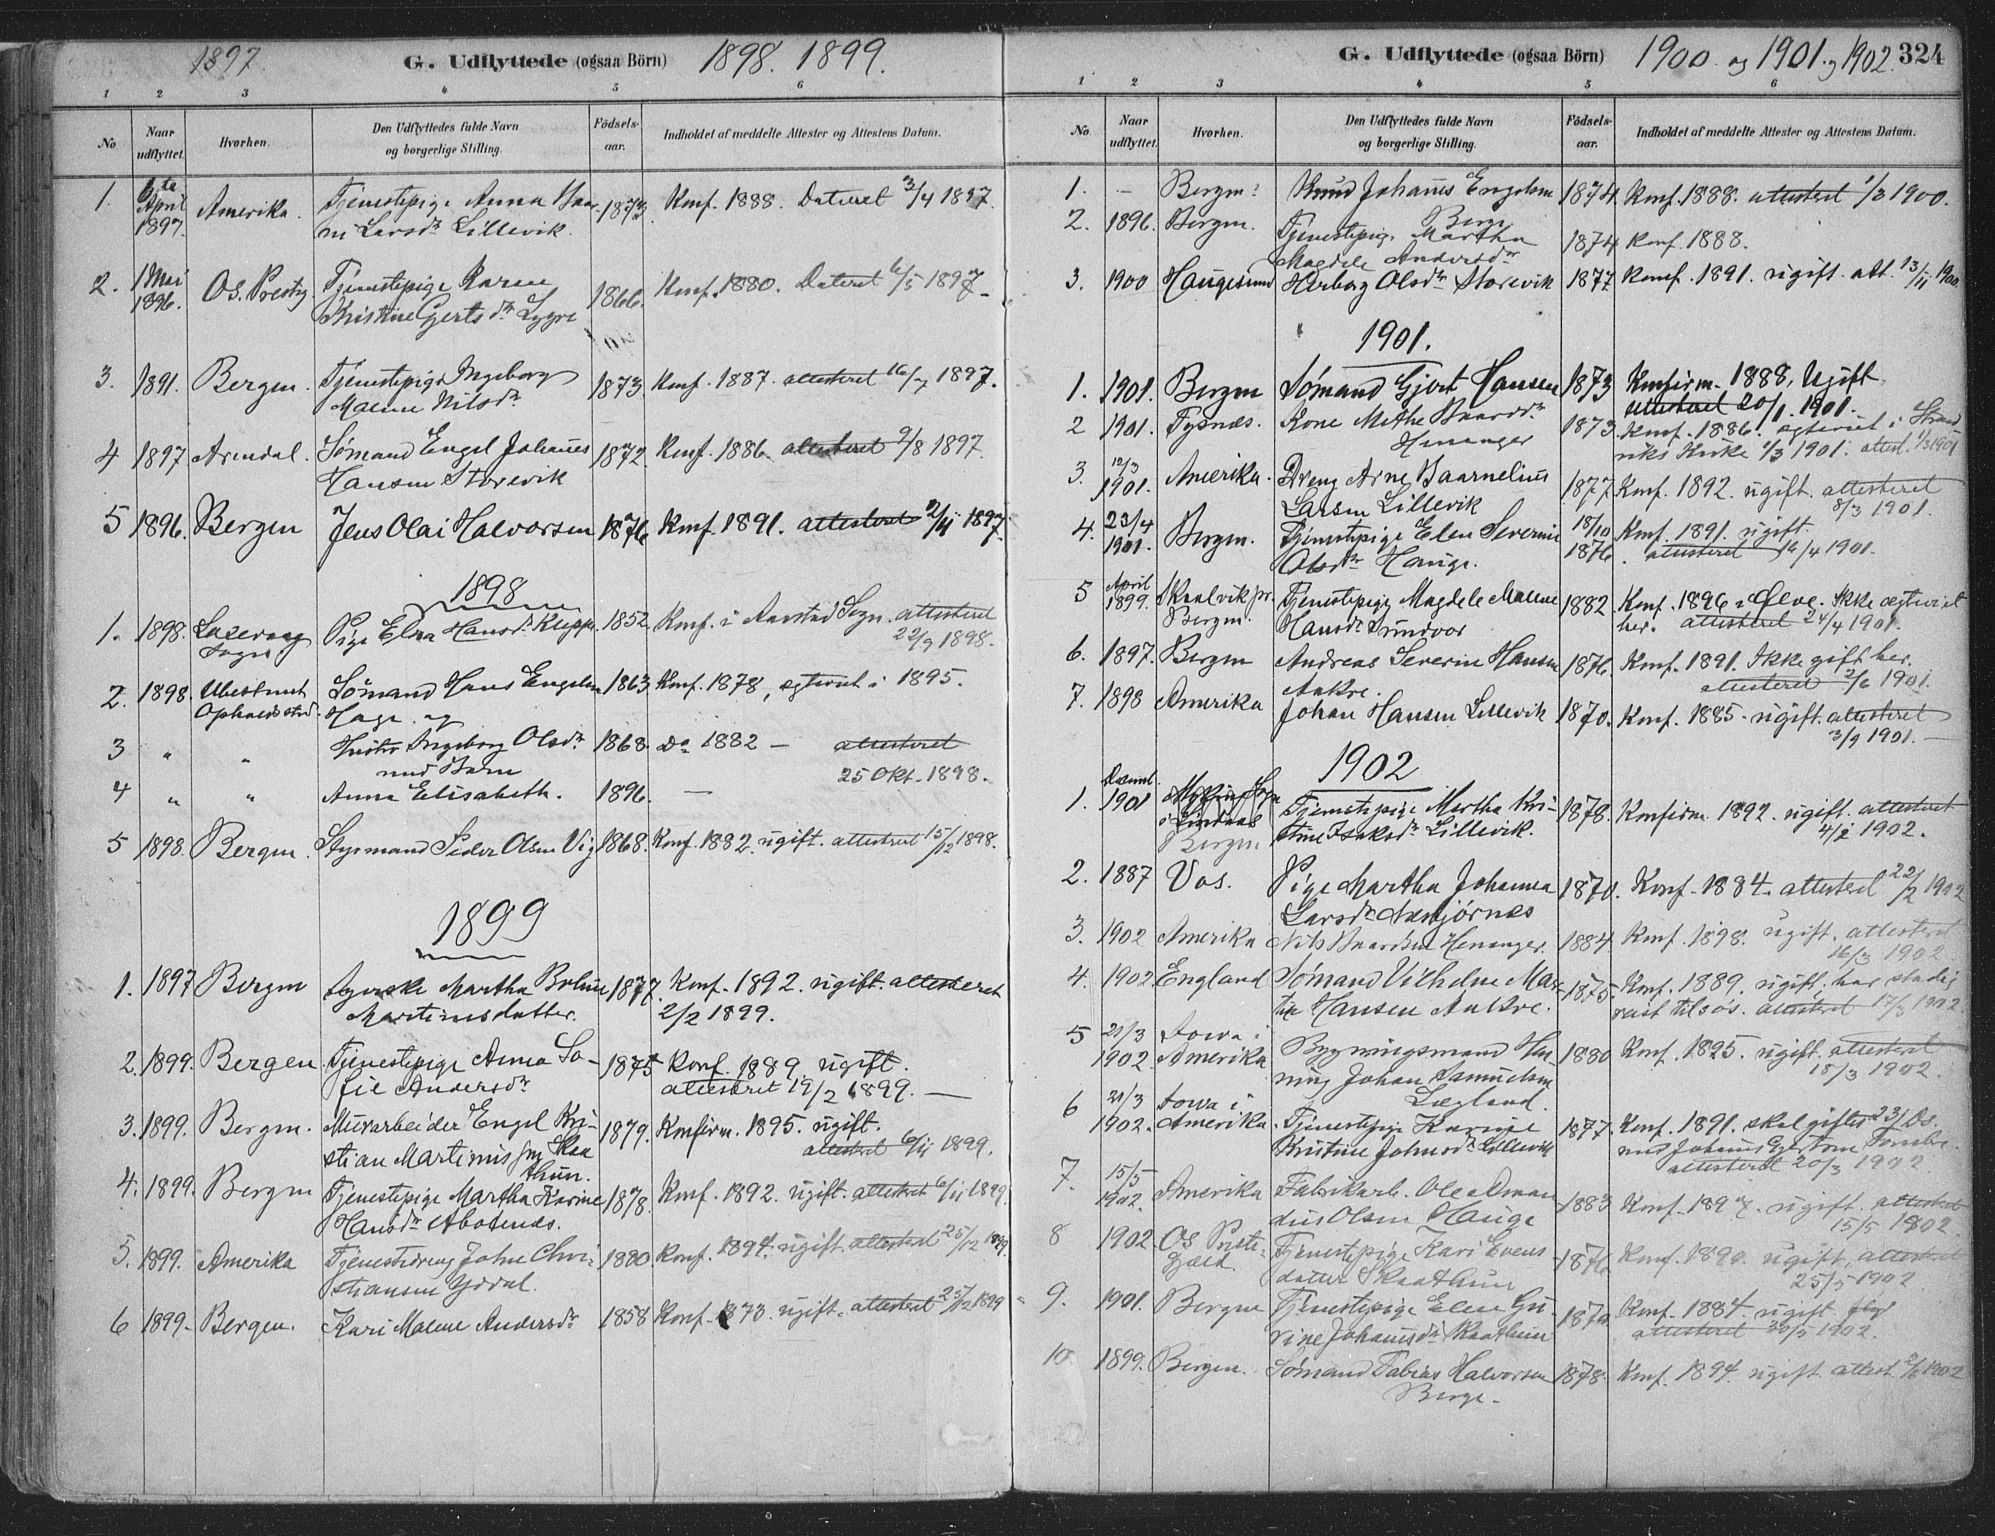 1897. G. Udflyttede (ogsaa Börn) 1898. 1899.
1 2 3 4 5 6
No Naar udflyttet. Hvorhen. Den Udflyttedes fulde Navn og borgerlige Stilling. Födsels-aar. Indholdet af meddelte Attester og Attestens Datum.
1. April 1897. Amerika. Tjenestepige Anna 1873. Konf. 1888. Dateret 3/4 1897.
Larsdr Lillevik.
2. 1 Mai 1896. Os. Præstg Tjenestepige Karen 1866. Konf. 1880. Dateret 6/5 1897
Kristine Gertsdr Lygre
3. 1891. Bergen. Tjenestepige Ingeborg 1873. Konf. 1887. attesteret 16/7 1897.
Malene Nilsdr
4 1897 Arendal. Sømand Engel Johannes 1872. Konf. 1886. attesteret 9/8 1897.
Hansen Storevik
5 1896. Bergen Jens Olai Halvorsen 1876. Konf. 1891. attesteret 2/11 1897.
1898
1. 1898. Sogn Pige Hansdr Klepp. 1852. Konf. i Sogn. attesteret
22/9 1898.
2. 1898. Ubestemt Sømand Hans Engelsen 1863. Konf. 1878, egteviet i 1895.
Opholdssted. Hage. og
3 " " Hustru Ingeborg Olsdr 1868. Do 1882 — attesteret
med Barn 25 Okt. 1898.
4 " " Anna Elisabeth. 1896. —
5 1898. Bergen. Styrmand Peder Olsen Vig 1868. Konf. 1882. ugift. attesteret 15/12 1898.
1899
1. 1897 Bergen Syerske Martha 1877. Konf. 1892. ugift. attesteret
Martinusdatter. 2/2 1899.
2. 1899. Bergen Tjenestepige Anna So- 1875 Konf. 1889. ugift.
fie Andersdr attesteret 19/2 1899. —
3. 1899. Bergen. Murarbeider Engel Kri- 1879. Konfirm. 1895. ugift.
stian Martinussen Skaa attesteret 6/11 1899.
thun.
4. 1899. Bergen Tjenestepige Martha Karine 1878. Konf. 1892. ugift. attesteret 6/11 1899.
Hansdr
5. 1899. Amerika Tjenestedreng John Chri- 1880 Konf. 1894. ugift. attesteret 25/12 1899.
stiansen Yddal.
6 1899. Bergen. Kari Malene Andersdr 1858 Konf. 1873. ugift. attesteret 25/12 1899
G. Udflyttede (ogsaa Börn) 1900. og 1901. og 1902. 324
1 2 3 4 5 6
No. Naar udflyttet. Hvorhen. Den Udflyttedes fulde Navn og borgerlige Stilling. Födsels-aar. Indholdet af meddelte Attester og Attestens Datum.
1. — Bergen. Knud Johannes Engelsen 1874. Konf. 1888. attesteret 1/3 1900.
Berge
2. 1896. Bergen. Tjenestepig. Martha 1874 Konf. 1888.
Magdele Andersdr
3. 1900 Haugesund Herborg Olsdr Storevik 1877 Konf. 1891. ugift. att. 13/11 1900.
1901.
1. 1901. Bergen Sømand Gjert Hansen 1873 Konfirm. 1888, Ugift.
attesteret 20/1. 1901.
2 1901. Tysnæs. Kone Mette Baardsdr 1873. Konf. 1886. egteviet i Strand
Henanger viks Kirke 1/3 1901. attest. 1/3 1901
3. 12/3 1901. Amerika. Dreng Arne Baarnelius 1877. Konf. 1892. ugift. attesteret
Larsen Lillevik 8/3 1901.
4. 23/4 1901. Bergen. Tjenestepige Elen Severine 18/10 1876. Konf. 1891. ugift.
Olsdr Hauge. attesteret 16/4 1901.
5 April 1899. Skaalvik pr. Bergen. Tjenestepige Magdele Malene 1882 Konf. 1896 i Ølve. Ikke egteviet
Hansdr Sundvor her. attesteret 24/4 1901.
6. 1897. Bergen Andreas Severin Hansen 1876. Konf. 1891. Ikke gift her.
Aakre. attesteret 2/6 1901.
7. 1898 Amerika Johan Hansen Lillevik 1870. Konf. 1885. ugift. attesteret
3/9 1901. —
1902
1. Decemb. 1901 Sogn i Lindaas Bergen Tjenestepige Martha Kri- 1878. Konfirm. 1892. ugift. attesteret
stine Isaksdr Lillevik. 4/2 1902.
2. 1887 Vos. Pige Martha Johanna 1870. Konf. 1884. attesteret 22/2 1902
Larsdr
3. 1902 Amerika Nils Baardsen Henanger. 1884. Konf. 1898. ugift. attesteret
16/3 1902.
4. 1902 England Sømand Vilhelm Mar- 1875. Konf. 1889. ugift, har stadig
tin Hansen Aakre. reist tilsøs. attesteret 17/3 1902.
5 21/3 1902. Iowa i Amerika Bygningsmand Hen- 1880 Konf. 1895. ugift. attesteret
ning Johan Samuelsen 18/3 1902.
Lægland.
6 21/3 1902. Iowa i Amerika. Tjenestepige Karine 1877. Konf. 1891. skal giftes 23/3 Ds.
Kristine Johnsdr Lillevik med Johannes
attesteret 20/3 1902.
7. 15/5 1902. Amerika Fabrikarb. Ole Aman 1883 Konf. 1897. ugift. attesteret
dus Olsen Hauge 15/5 1902.
8 1902. Os Præste- Tjenestepige Kari Evens 1876 Konf. 1890. ugift, attesteret
gjæld. datter Skaathun 25/5 1902
9. 1901. Bergen Tjenestepige Elen Gu- 1870. Konf. 1884. ugift
rine Johannesdr Skaathun attesteret 30/5 1902.
10 1899. Bergen. Sømand Tobias Halvorsen 1878. Konf. 1894. ugift attest. 2/6 1902
Berge.